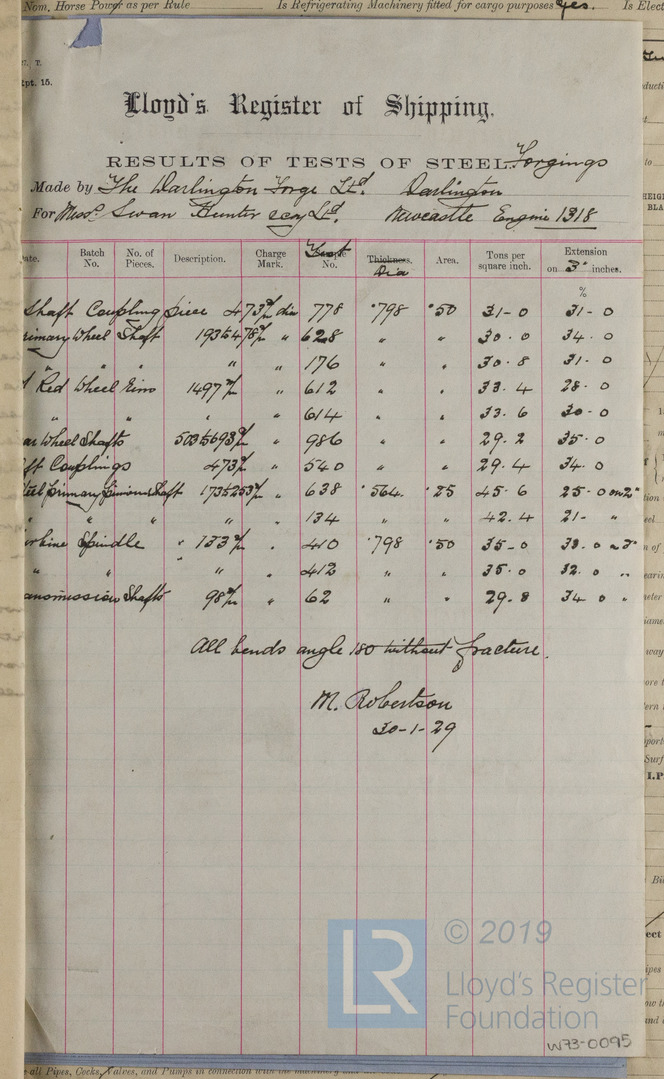 Nom. Horse Power as per Rule Is Refrigerating Machinery fitted for cargo purposes Yes. Is Elect
pt. 15.
Lloyd's Register of Shipping.
RESULTS OF TESTS OF STEEL Forgings
Made by The Darlington Forge Ltd. Darlington
For Messrs. Swan Hunter & Co Ltd. Newcastle Engine 1318
ate. Batch No. No. of Pieces. Description. Charge Mark. Test No. Thickness. Dia Area. Tons per square inch. Extension on 3" inches.
%
Shaft Coupling piece 473 m/m dia 778 .798 .50 31-0 31-0
rimary Wheel Shaft 193 & 478 m/m " 628 " " 30.0 34.0
" " " " 176 " " 30.8 31.0
Red Wheel Rims 1497 m/m " 612 " " 33.4 28.0
" " " " 614 " " 33.6 30-0
ar Wheel Shafts 503 & 693 m/m " 986 " " 29.2 35.0
ft Couplings 473 m/m " 540 " " 29.4 34.0
teel primary pinion shaft 173 & 253 m/m " 638 .564 .25 45.6 25.0 on 2"
" " " " 134 " " 42.4 21- "
urbine Spindle " 133 m/m " 410 .798 .50 35-0 33.0 on 3"
" " " " 412 " " 35.0 32.0 "
ansmission Shafts 98 m/m " 62 " " 29.8 34.0 "
All bends angle 180 without fracture.
M. Robertson
30-1-29
© 2019
LR
Lloyd's Register
Foundation
W73-0095
all Pipes, Cocks, Valves, and Pumps in connection with the machinery and